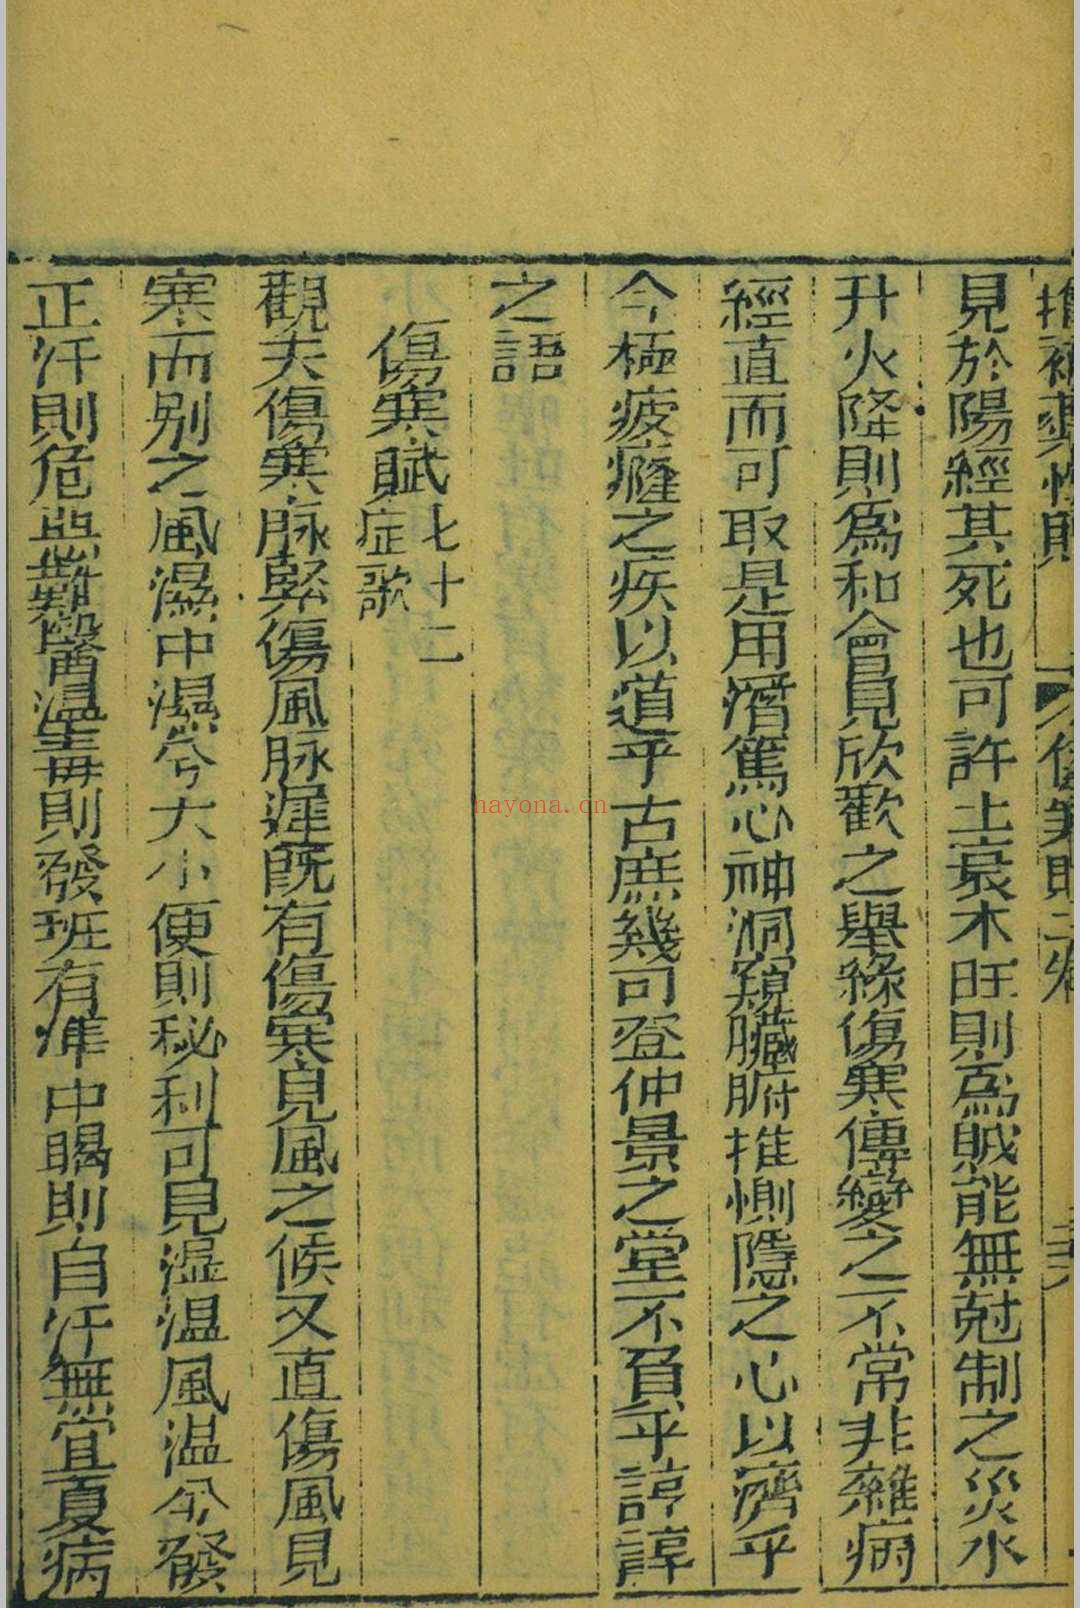 見於陽經其死也可許土衰木旺則為賊能無尅制之災水
升火降則爲和會見欣歡之舉緣傷寒傳變之不常非雜病
經直而可取是用潛篤心神洞窺臟腑推惻隱之心以濟乎
今極疲癃之疾以道乎古庶幾可登仲景之堂不負乎諄諄
之語
傷寒賦七十二症歌
觀夫傷寒脉緊傷風脉遲既有傷寒見風之候又直傷風見
寒而别之風濕中濕兮大小便則秘利可見湿温風温兮發
正汗則危亞難醫温毒則發班有準中暍則自汗無宜夏病
hayona.cn